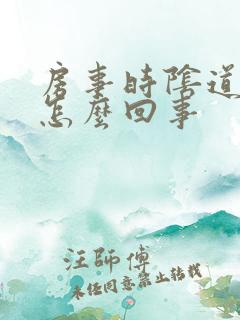 房事時陰道
怎麼回事
汪師傅
未经同意禁止转载